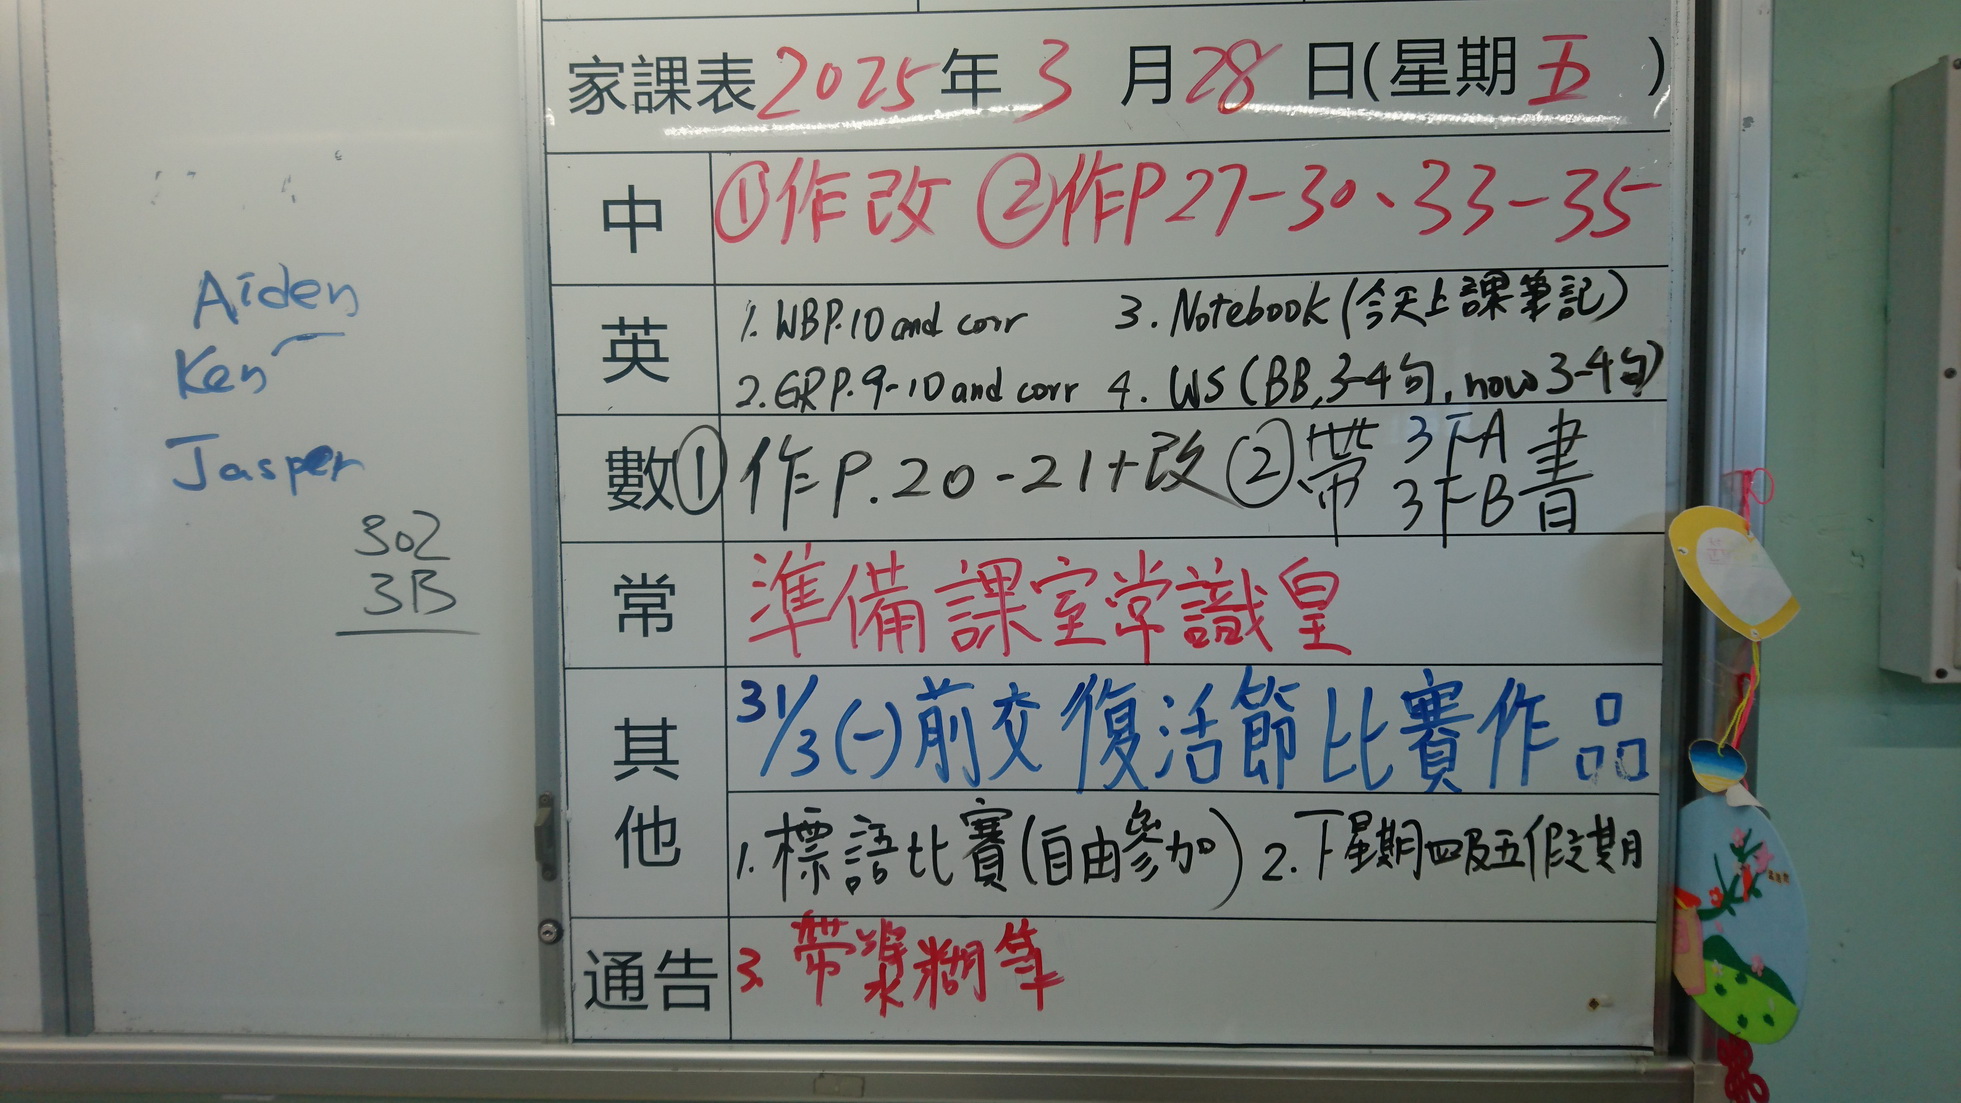 Aiden
Ken
Jasper
302
3B
家課表2025年3月28日(星期五)
中 ①作改 ②作P27-30、33-35
英 1. WBP.10 and corr 3. Notebook (今天上課筆記)
2. GRP.9-10 and corr 4. WS (BB,3-4句, now 3-4句)
數 ①作P.20-21+改 ②帶 3下A 3下B 書
常 準備課室常識皇
其他 31/3(一)前交復活節比賽作品
1. 標語比賽(自由參加) 2. 下星期四及五假期
通告 3. 帶漿糊筆